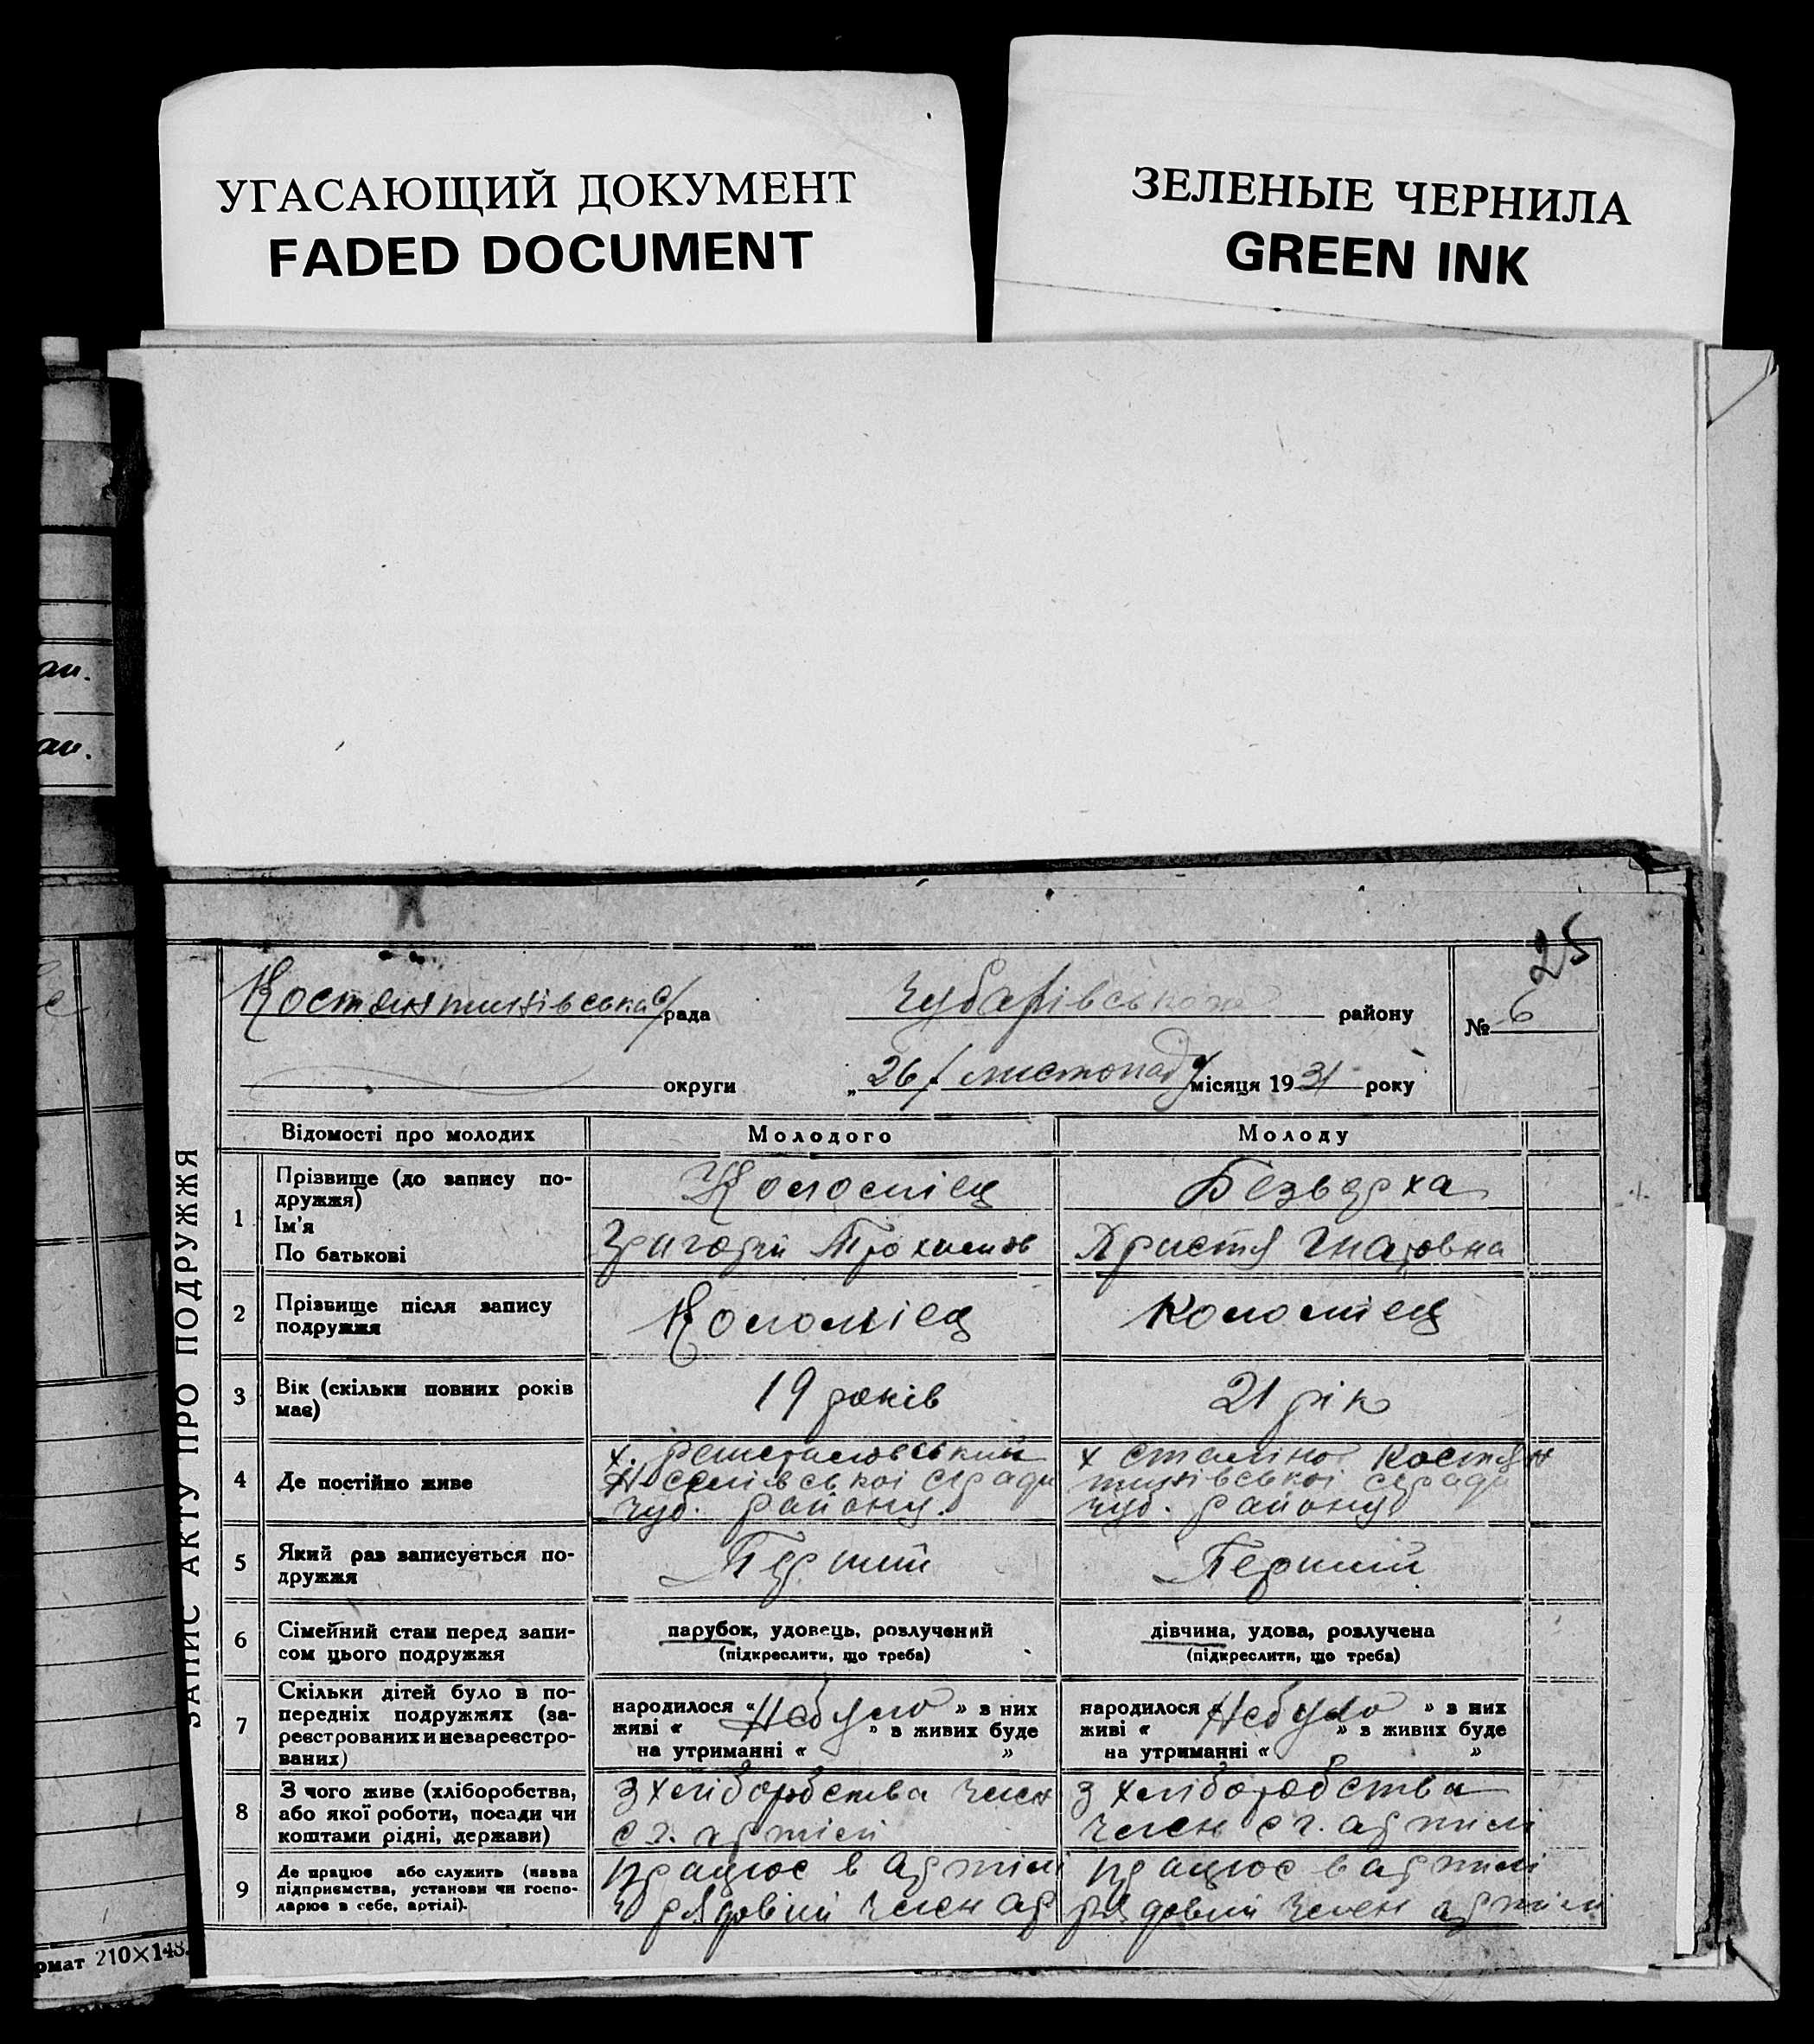 УГАСАЮЩИЙ ДОКУМЕНТ
FADED DOCUMENT
ЗЕЛЕНЫЕ ЧЕРНИЛА
GREEN INK
ан.
ан.
рмат 210×148.
ЗАПИС АКТУ ПРО ПОДРУЖЖЯ
25
Костянтинівська с/рада Чубарівського району № 6
округи „ 26/ листопаду місяця 1931 року
Відомості про молодих Молодого Молоду
1 Прізвище (до запису по-
дружжя)
Ім'я
По батькові
Коломієц
Григорій Трохимов
Безверха
Христя Гнатовна
2 Прізвище після запису
подружжя
Коломієц
Коломієц
3 Вік (скільки повних років
має)
19 років
21 рік
4 Де постійно живе
х.
с/ради
Чуб. району.
х Сталіно Костян
тинівської с/ради
Чуб. району
5 Який раз записується по-
дружжя
Перший
Перший
6 Сімейний стан перед запи-
сом цього подружжя
парубок, удовець, розлучений
(підкреслити, що треба)
дівчина, удова, розлучена
(підкреслити, що треба)
7 Скільки дітей було в по-
передніх подружжях (за-
реєстрованих и незареєстро-
ваних)
народилося « Небуло » в них
живі « » в живих буде
на утриманні « »
народилося « Небуло » в них
живі « » в живих буде
на утриманні « »
8 З чого живе (хліборобства,
або якої роботи, посади чи
коштами рідні, держави)
з хліборобства член
с г. артілі
з хліборобства
член с г. артілі
9 Де працює або служить (назва
підприємства, установи чи госпо-
дарює в себе, артілі).
працює в артілі
рядовий член ар
працює в артілі
рядовий член артілі